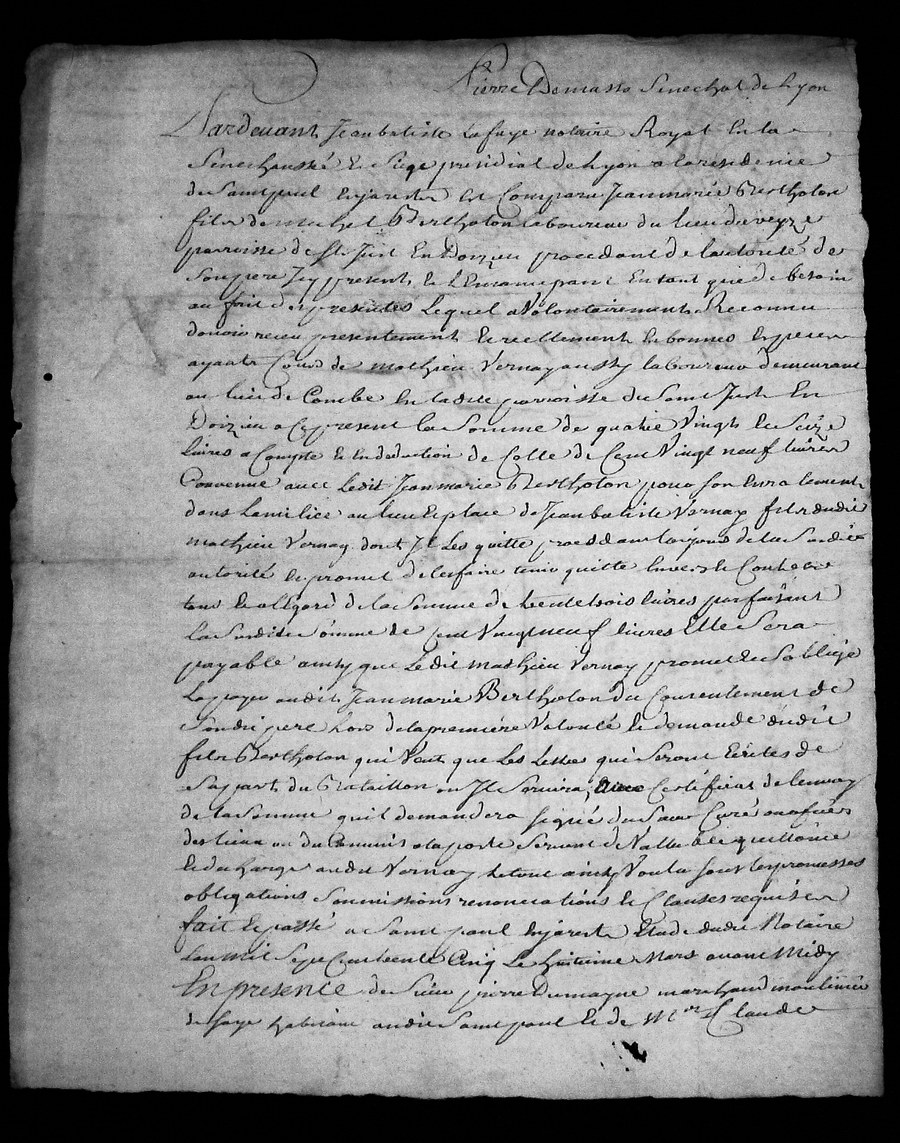 Pierre Demasso Senechal de Lyon
Pardevant Jean batiste Lafaye notaire Royal En la
Senechaussé & Siege presidial de Lyon a la residence
de Saint paul En jarest Est Comparu Jean marie Bertholon
fils de michel Bertholon laboureur du lieu du veyze
parroisse de St Just En Doizieu procedant de lautorité de
Son pere Icy present & lEmancipant En tant que de besoin
au fait des presentes Lequel a Volontairement Reconnu
davoir receu presentement & reellement En bonnes Especes
ayant Cours de mathieu Vernay aussy laboureur demeurant
au lieu de Combe En ladite parroisse du Saint Just En
Doizieu a Ce present la Somme de quatre Vingts & Seize
livres a Compte & En deduction de Celle de Cent Vingt neuf livres
Convenue avec Ledit Jean marie Bertholon pour son Enrolement
dans La milice au lieu & place de Jean batiste Vernay fils dudit
mathieu Vernay dont Il Les quitte procedant toujours de la Susditte
autorité & promet de les faire tenir quitte Envers &
tous & a lEgard de la Somme de trente trois livres parfaisant
la Susdite Somme de Cent Vingt neuf livres Elle Sera
payable ainsy que Ledit mathieu Vernay promet & Soblige
La payer audit Jean marie Bertholon du Consentement de
Sondit pere Lors de la premiere Volonté & demande dudit
fils Bertholon qui Veut que Les Lettres qui Seront Ecrites de
Sa part du Bataillon ou Il Servira, avec Certificat de lenvoy
de la Somme quil demandera Signé du Sieur Curé
des lieux ou du Commis a la poste Servent de Valable quittance
& decharge audit Vernay Le tout ainsy Voulu Sous les promesses
obligations Soumissions renonciations & Clauses requises
fait & passé a Saint paul En jarest Etude dudit Notaire
Lan mil Sept Cent trente Cinq Le huitieme Mars avant Midy
En presence de Sieur pierre Dumayne marchand moulinier
de Soye habitant audit Saint paul & de Mre Claude